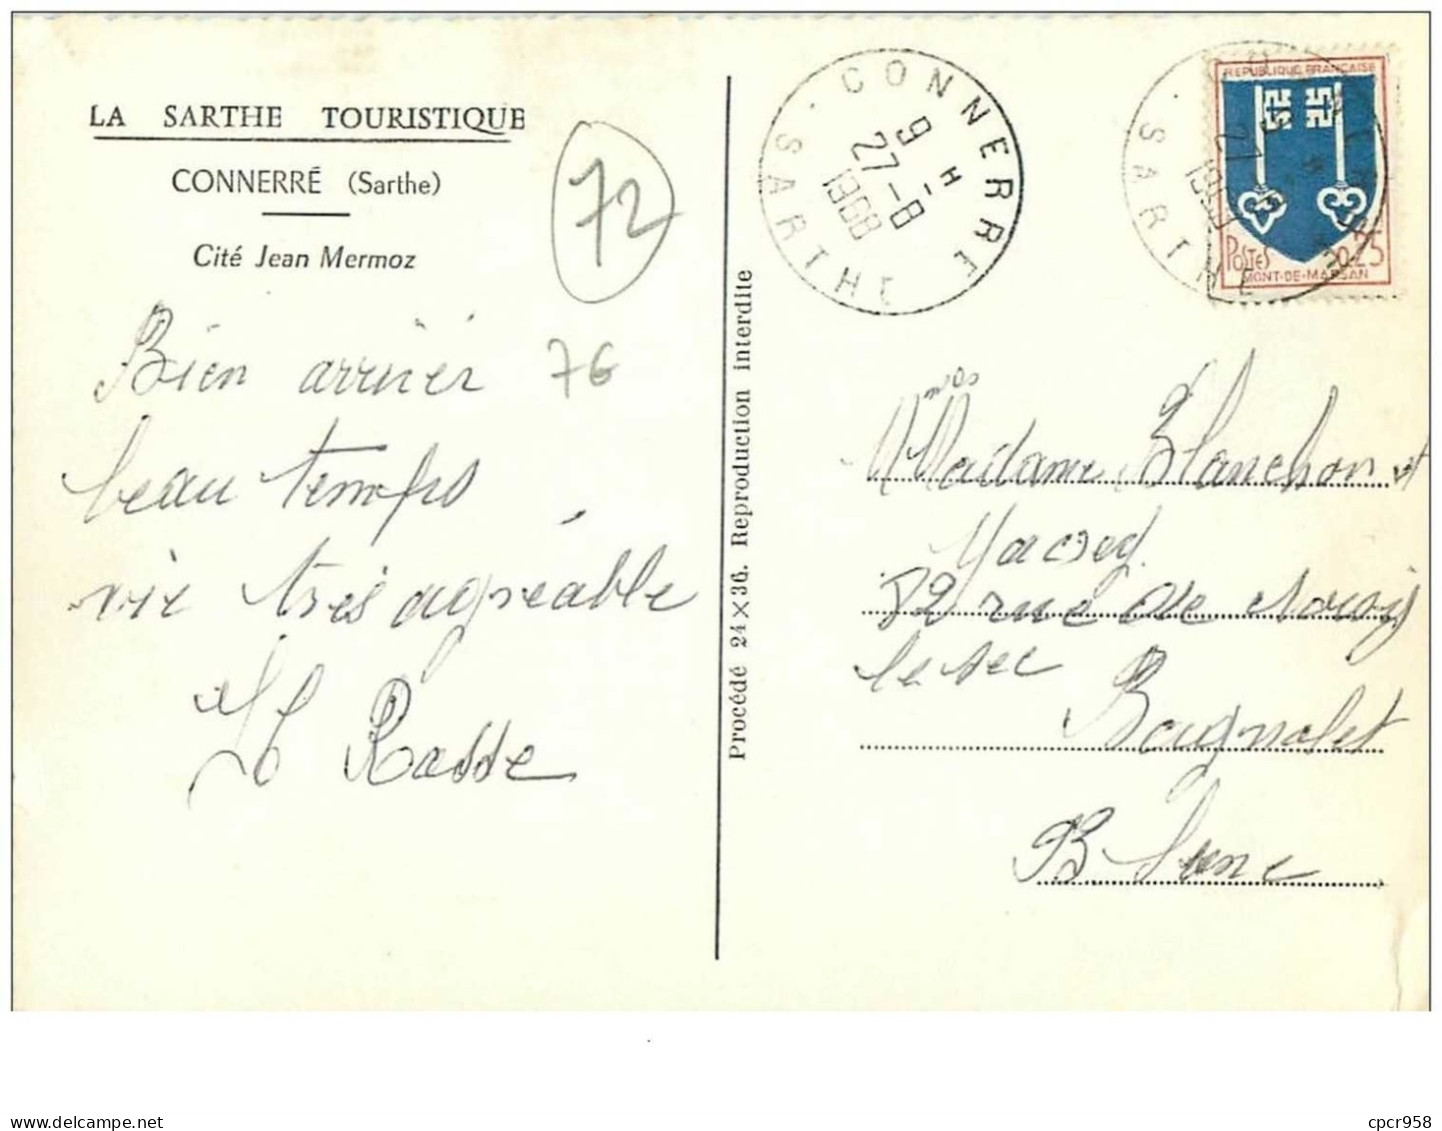 LA SARTHE TOURISTIQUE
CONNERRÉ (Sarthe)
Cité Jean Mermoz
72
76
Bien arriver
beau temps
vie très agréable
Rasse
Procédé 24 × 36. Reproduction interdite
CONNERRE
9 H
27-8
1968
SARTHE
SARTHE
REPUBLIQUE FRANÇAISE
POSTES 0,25
MONT-DE-MARSAN
Madame Blanchon et
52 rue de Noisy
le sec
Bagnolet
Seine
cpcr958